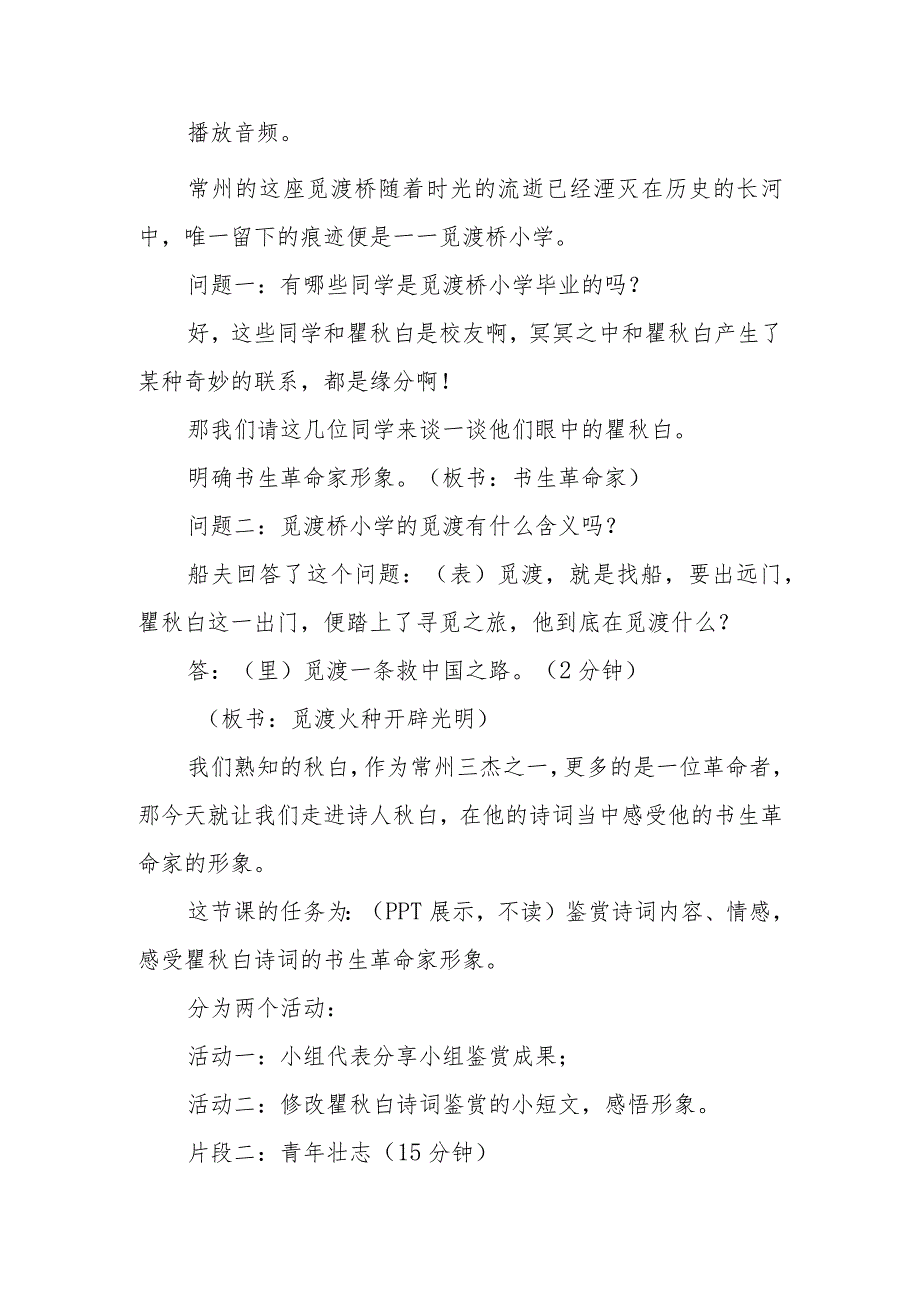 播放音频。
常州的这座觅渡桥随着时光的流逝已经湮灭在历史的长河
中，唯一留下的痕迹便是一一觅渡桥小学。
问题一：有哪些同学是觅渡桥小学毕业的吗？
好，这些同学和瞿秋白是校友啊，冥冥之中和瞿秋白产生了
某种奇妙的联系，都是缘分啊！
那我们请这几位同学来谈一谈他们眼中的瞿秋白。
明确书生革命家形象。（板书：书生革命家）
问题二：觅渡桥小学的觅渡有什么含义吗？
船夫回答了这个问题：（表）觅渡，就是找船，要出远门，
瞿秋白这一出门，便踏上了寻觅之旅，他到底在觅渡什么？
答：（里）觅渡一条救中国之路。（2 分钟）
（板书：觅渡火种开辟光明）
我们熟知的秋白，作为常州三杰之一，更多的是一位革命者，
那今天就让我们走进诗人秋白，在他的诗词当中感受他的书生革
命家的形象。
这节课的任务为：（PPT 展示，不读）鉴赏诗词内容、情感，
感受瞿秋白诗词的书生革命家形象。
分为两个活动：
活动一：小组代表分享小组鉴赏成果；
活动二：修改瞿秋白诗词鉴赏的小短文，感悟形象。
片段二：青年壮志（15 分钟）